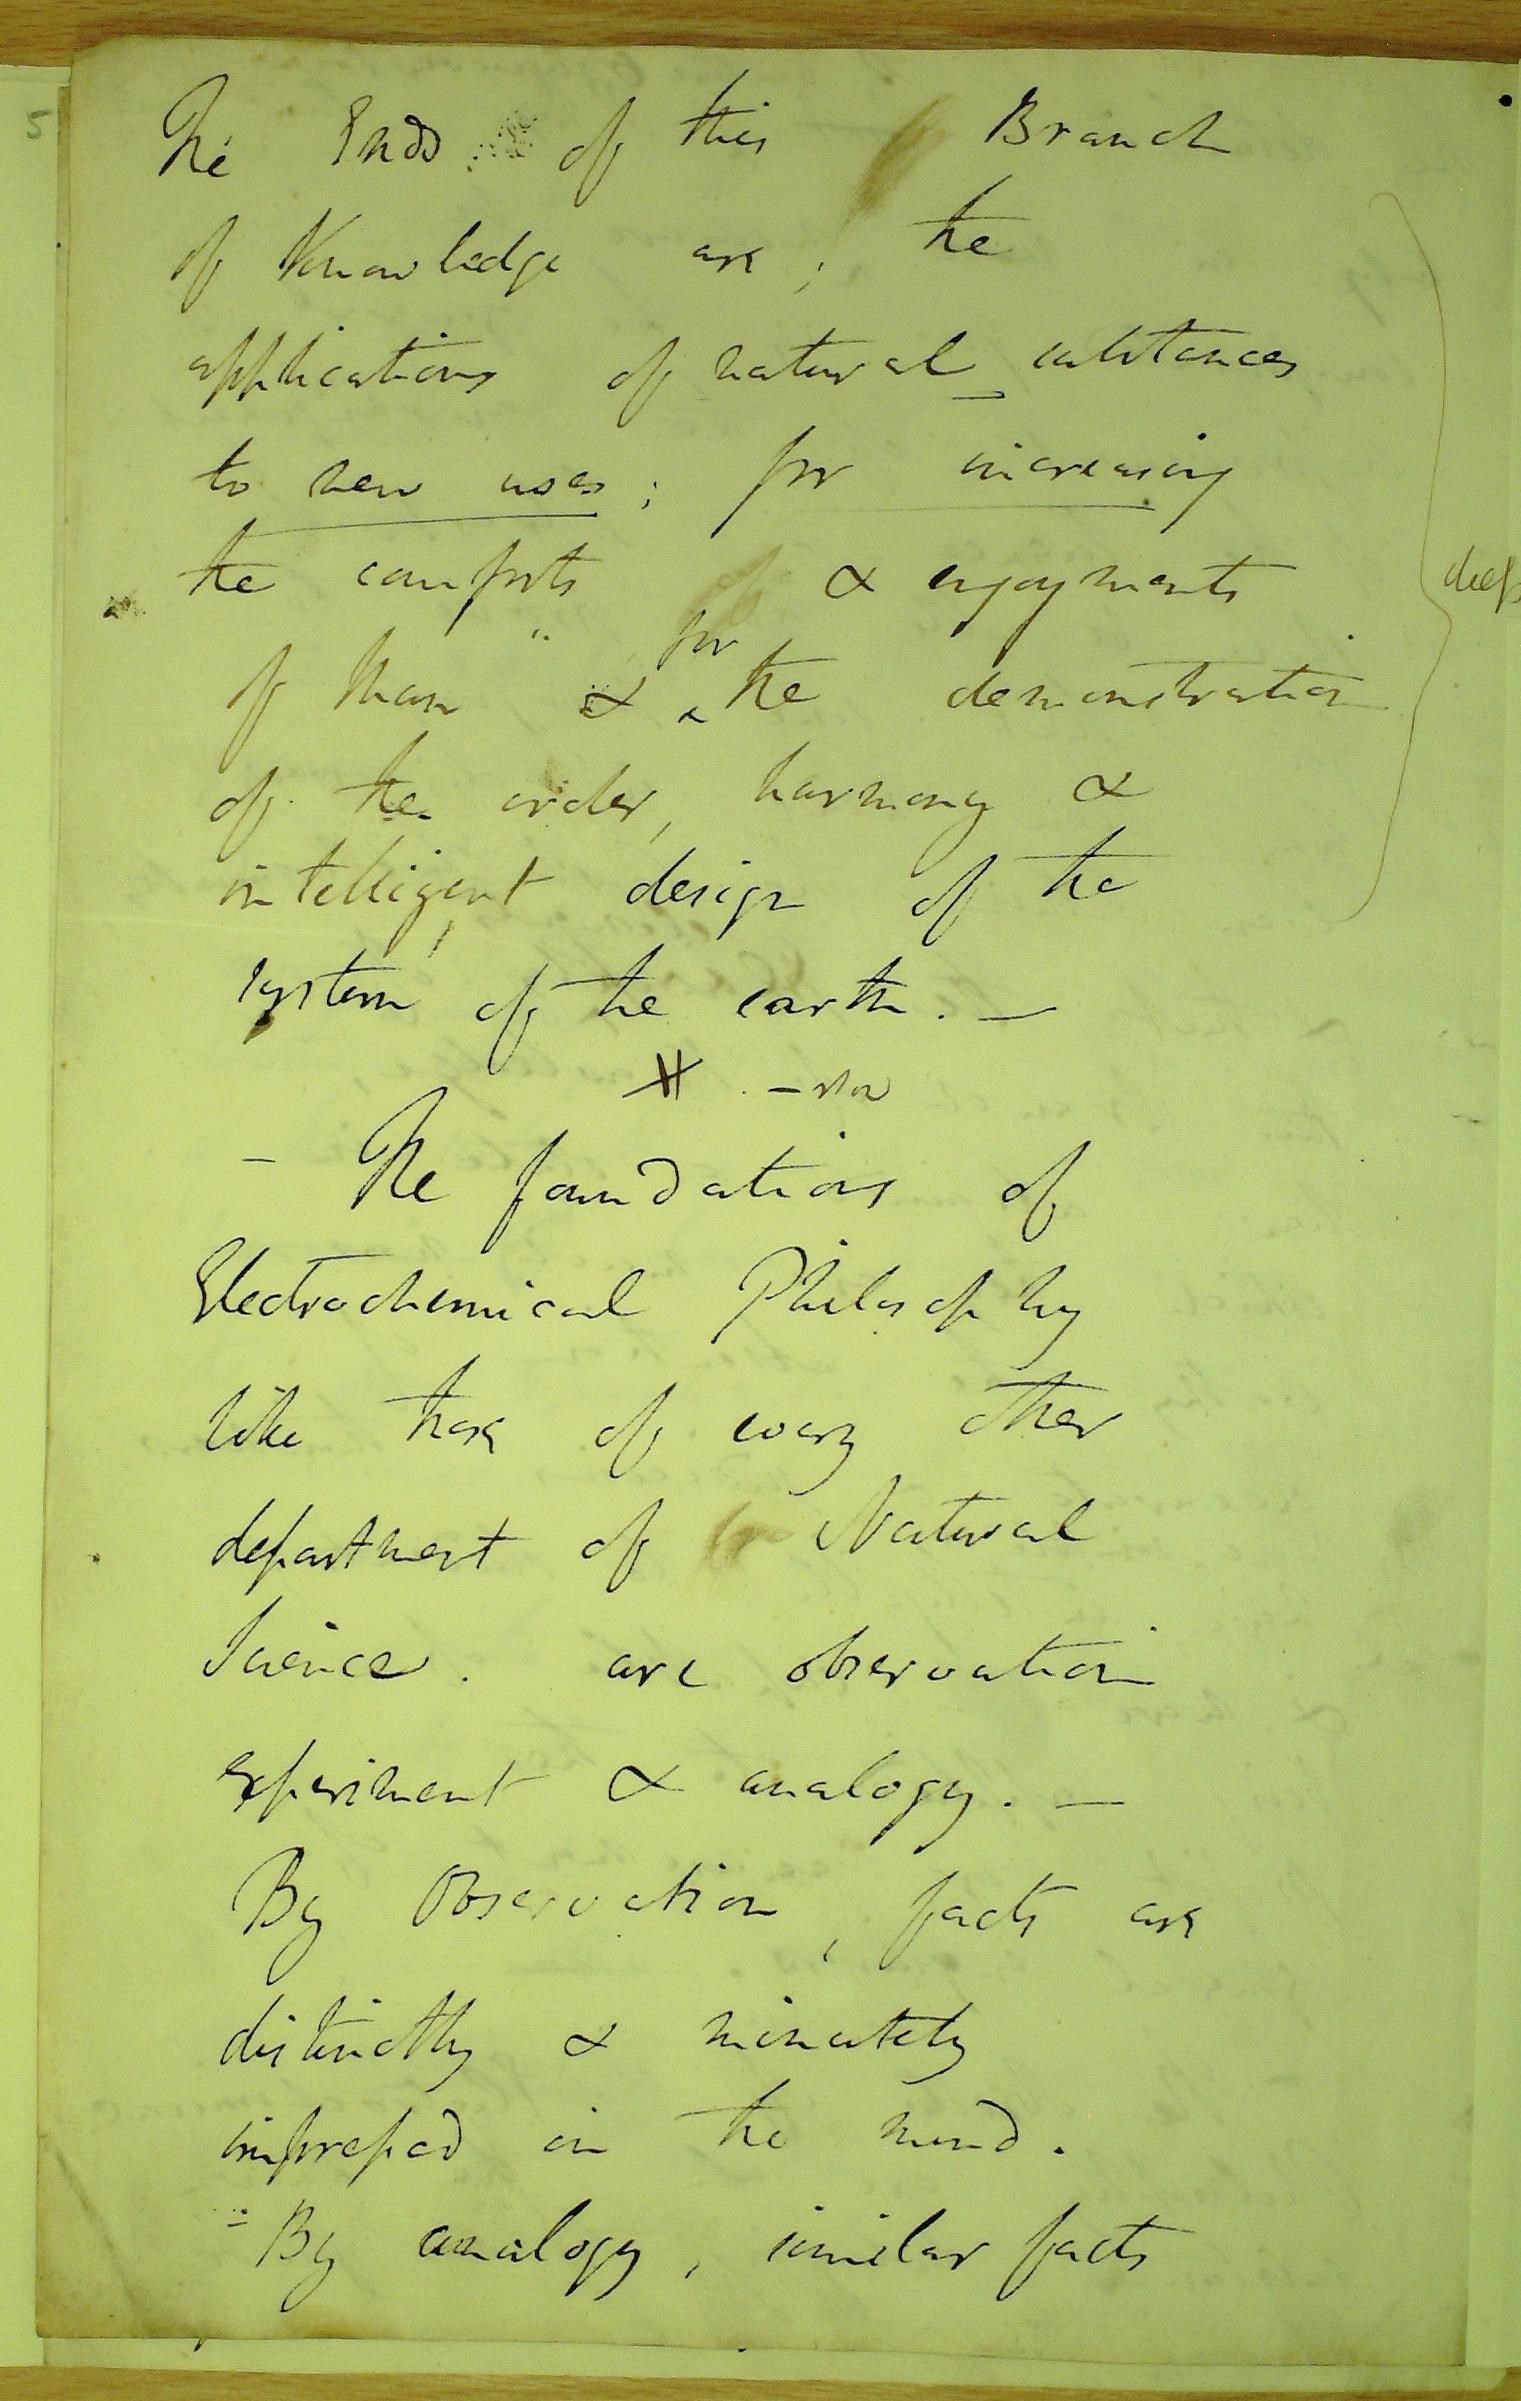 5
The Ends of this Branch
of Knowledge are, the
applications of natural substances
to new uses; for increasing
the comforts & enjoyments
of Man & for the demonstration
of the order, harmony &
intelligent design of the
system of the earth. —
deep
# — slow
— The foundations of
Electrochemical Philosophy
like those of every other
department of Natural
Science. are observation
experiment & analogy. —
By Observation, facts are
distinctly & minutely
impressed in the mind.
= By analogy, similar facts